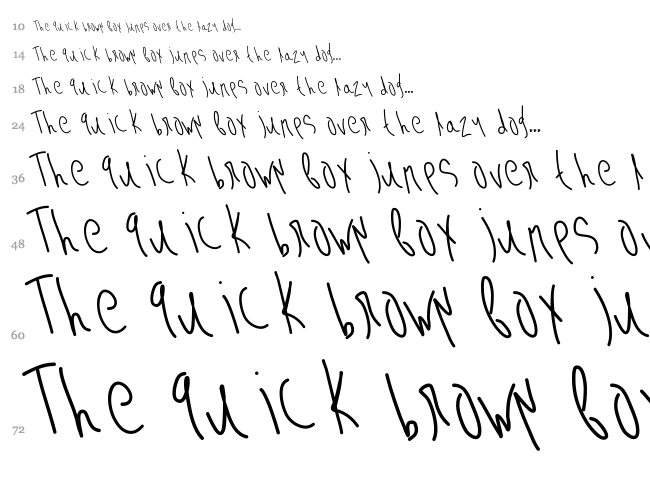 10 The quick brown fox jumps over the lazy dog...
14 The quick brown fox jumps over the lazy dog...
18 The quick brown fox jumps over the lazy dog...
24 The quick brown fox jumps over the lazy dog...
36 The quick brown fox jumps over the l
48 The quick brown fox jumps ov
60 The quick brown fox ju
72 The quick brown fo